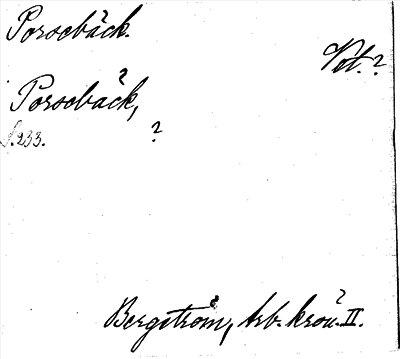 Porsebäck.
Vet.?
Porsebäck,
S. 233. ?
Bergström, Arb. krön. II.